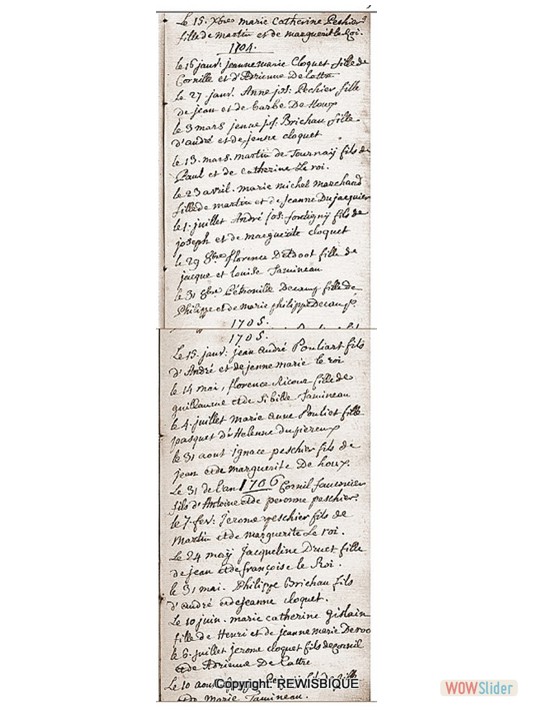 Le 15. Xbres marie catherine Peshier
fille de martin et de marguerit le Roi.
1704.
le 16 janvr: jeanne marie Cloquet fille de
Cornille et d'Adrienne De lattre
Le 27 janv. Anne jos: Pechier fille
de jean et de barbe De Houx
le 3 mars jenne js: Brichau fille
d'andré et de jenne cloquet
le 13. mars. martin de Tournay fils de
Paul et de catherine Le roi.
le 23 avril. marie michel marchand
fille de martin et de Jeanne Dujacquier
le 1. juillet André jos: fils de
joseph et de marguerite cloquet
le 29 8bre florence Detdoot fille de
jacque et louise Samineau
le 31 8bre Petronille Decamp fille de
Philippe et de marie philippe Decamp.
1705.
1705.
Le 15. janv: jean andré Pouliart fils
d'André et de jenne marie le roi
le 14 mai, florence Ricoue fille de
guillaume et de Sibille Samineau
le 4. juillet marie anne Pouliet fille
pasquet d'Helenne dupiereux
le 31 aout ignace peschier fils de
jean et de marguerite De houx.
Le 31 de l'an 1706 Cornil saucenier
fils d'Antoine et de peronne peschier.
le 7. fev: Jerome peschier fils de
Martin et de marguerite Le roi.
Le 24 may Jacqueline Druet fille
de jean et de françoise le Roi.
le 31 mai. Philippe Brichau fils
d'andré et de jeanne cloquet.
Le 10 juin. marie catherine gislain
fille de Henri et de jeanne marie Deroo
le 6. juillet jerome cloquet fils de corneil
et de Adrienne De lattre
Le 10 aout fille
de marie Samineau.
Copyright: REWISBIQUE
WOWSlider